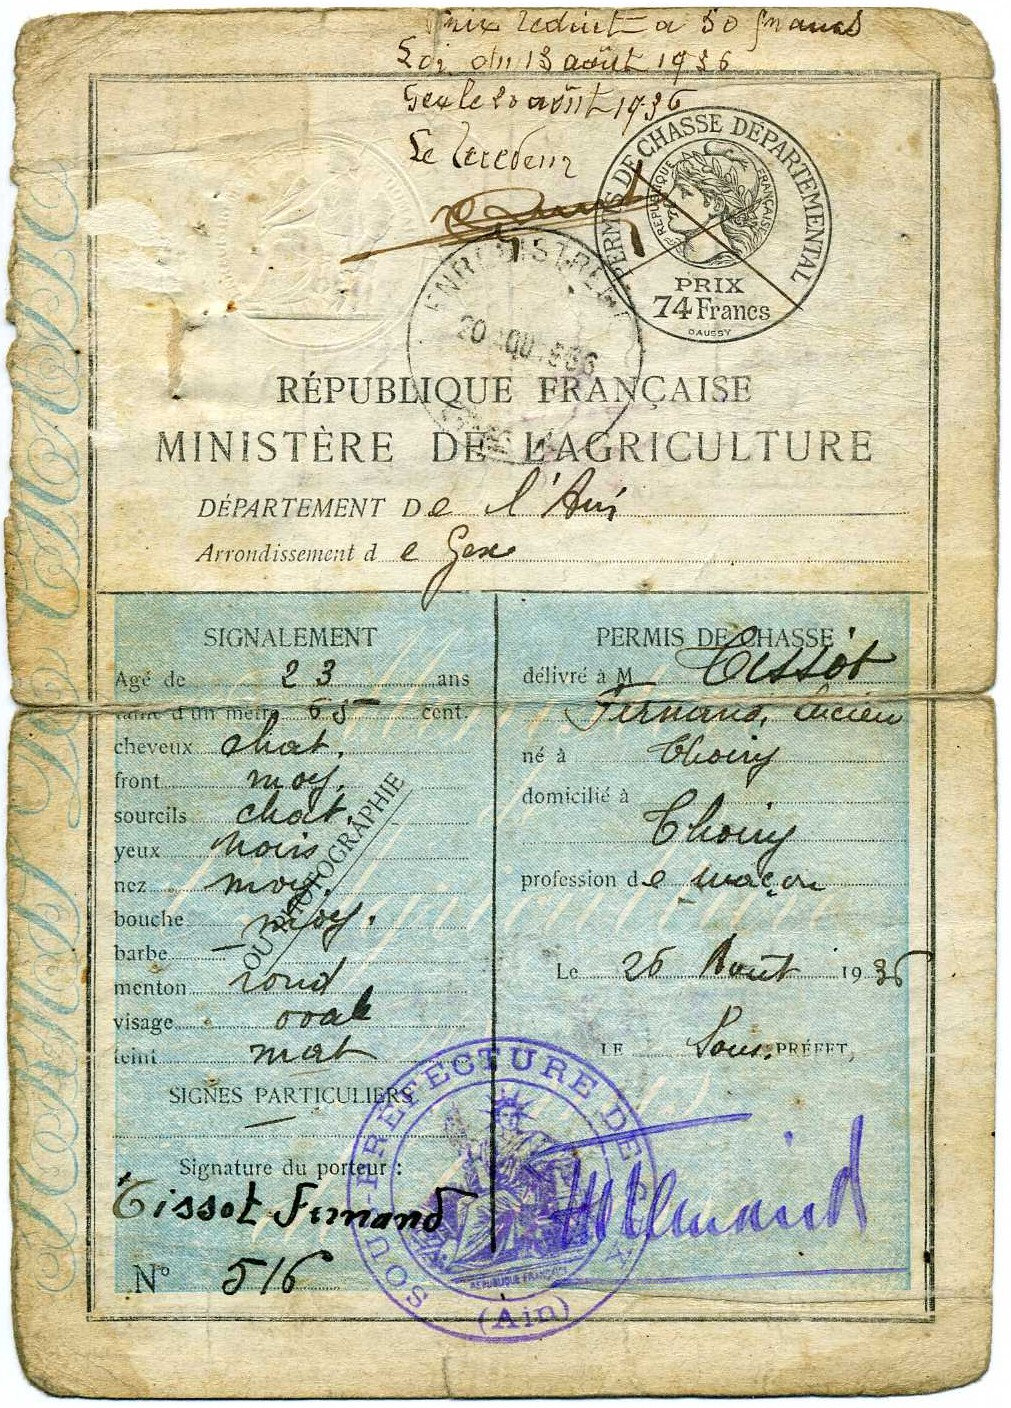 Prix reduit a 50 francs
Loi du 13 août 1936
Gex le 20 août 1936
Le
PERMIS DE CHASSE DEPARTEMENTAL
REPUBLIQUE FRANÇAISE
PRIX
74 Francs
DAUSSY
ENREGISTRE
20 AOU 1936
RÉPUBLIQUE FRANÇAISE
MINISTÈRE DE L'AGRICULTURE
DÉPARTEMENT De l'Ain
Arrondissement de Gex
SIGNALEMENT
Agé de 23 ans
taille d'un mètre 65 cent.
cheveux chat.
front moy.
sourcils chat.
yeux noirs
nez moy.
bouche moy.
barbe —
menton rond
visage oval
teint mat
OU PHOTOGRAPHIE
SIGNES PARTICULIERS
—
Signature du porteur :
Tissot Fernand
N° 516
PERMIS DE CHASSE
délivré à M Tissot
Fernand, Lucien
né à Thoiry
domicilié à
Thoiry
profession de maçon
Le 26 Août 1936
LE Sous-PRÉFET,
SOUS-PREFECTURE DE
REPUBLIQUE FRANÇAISE
(Ain)